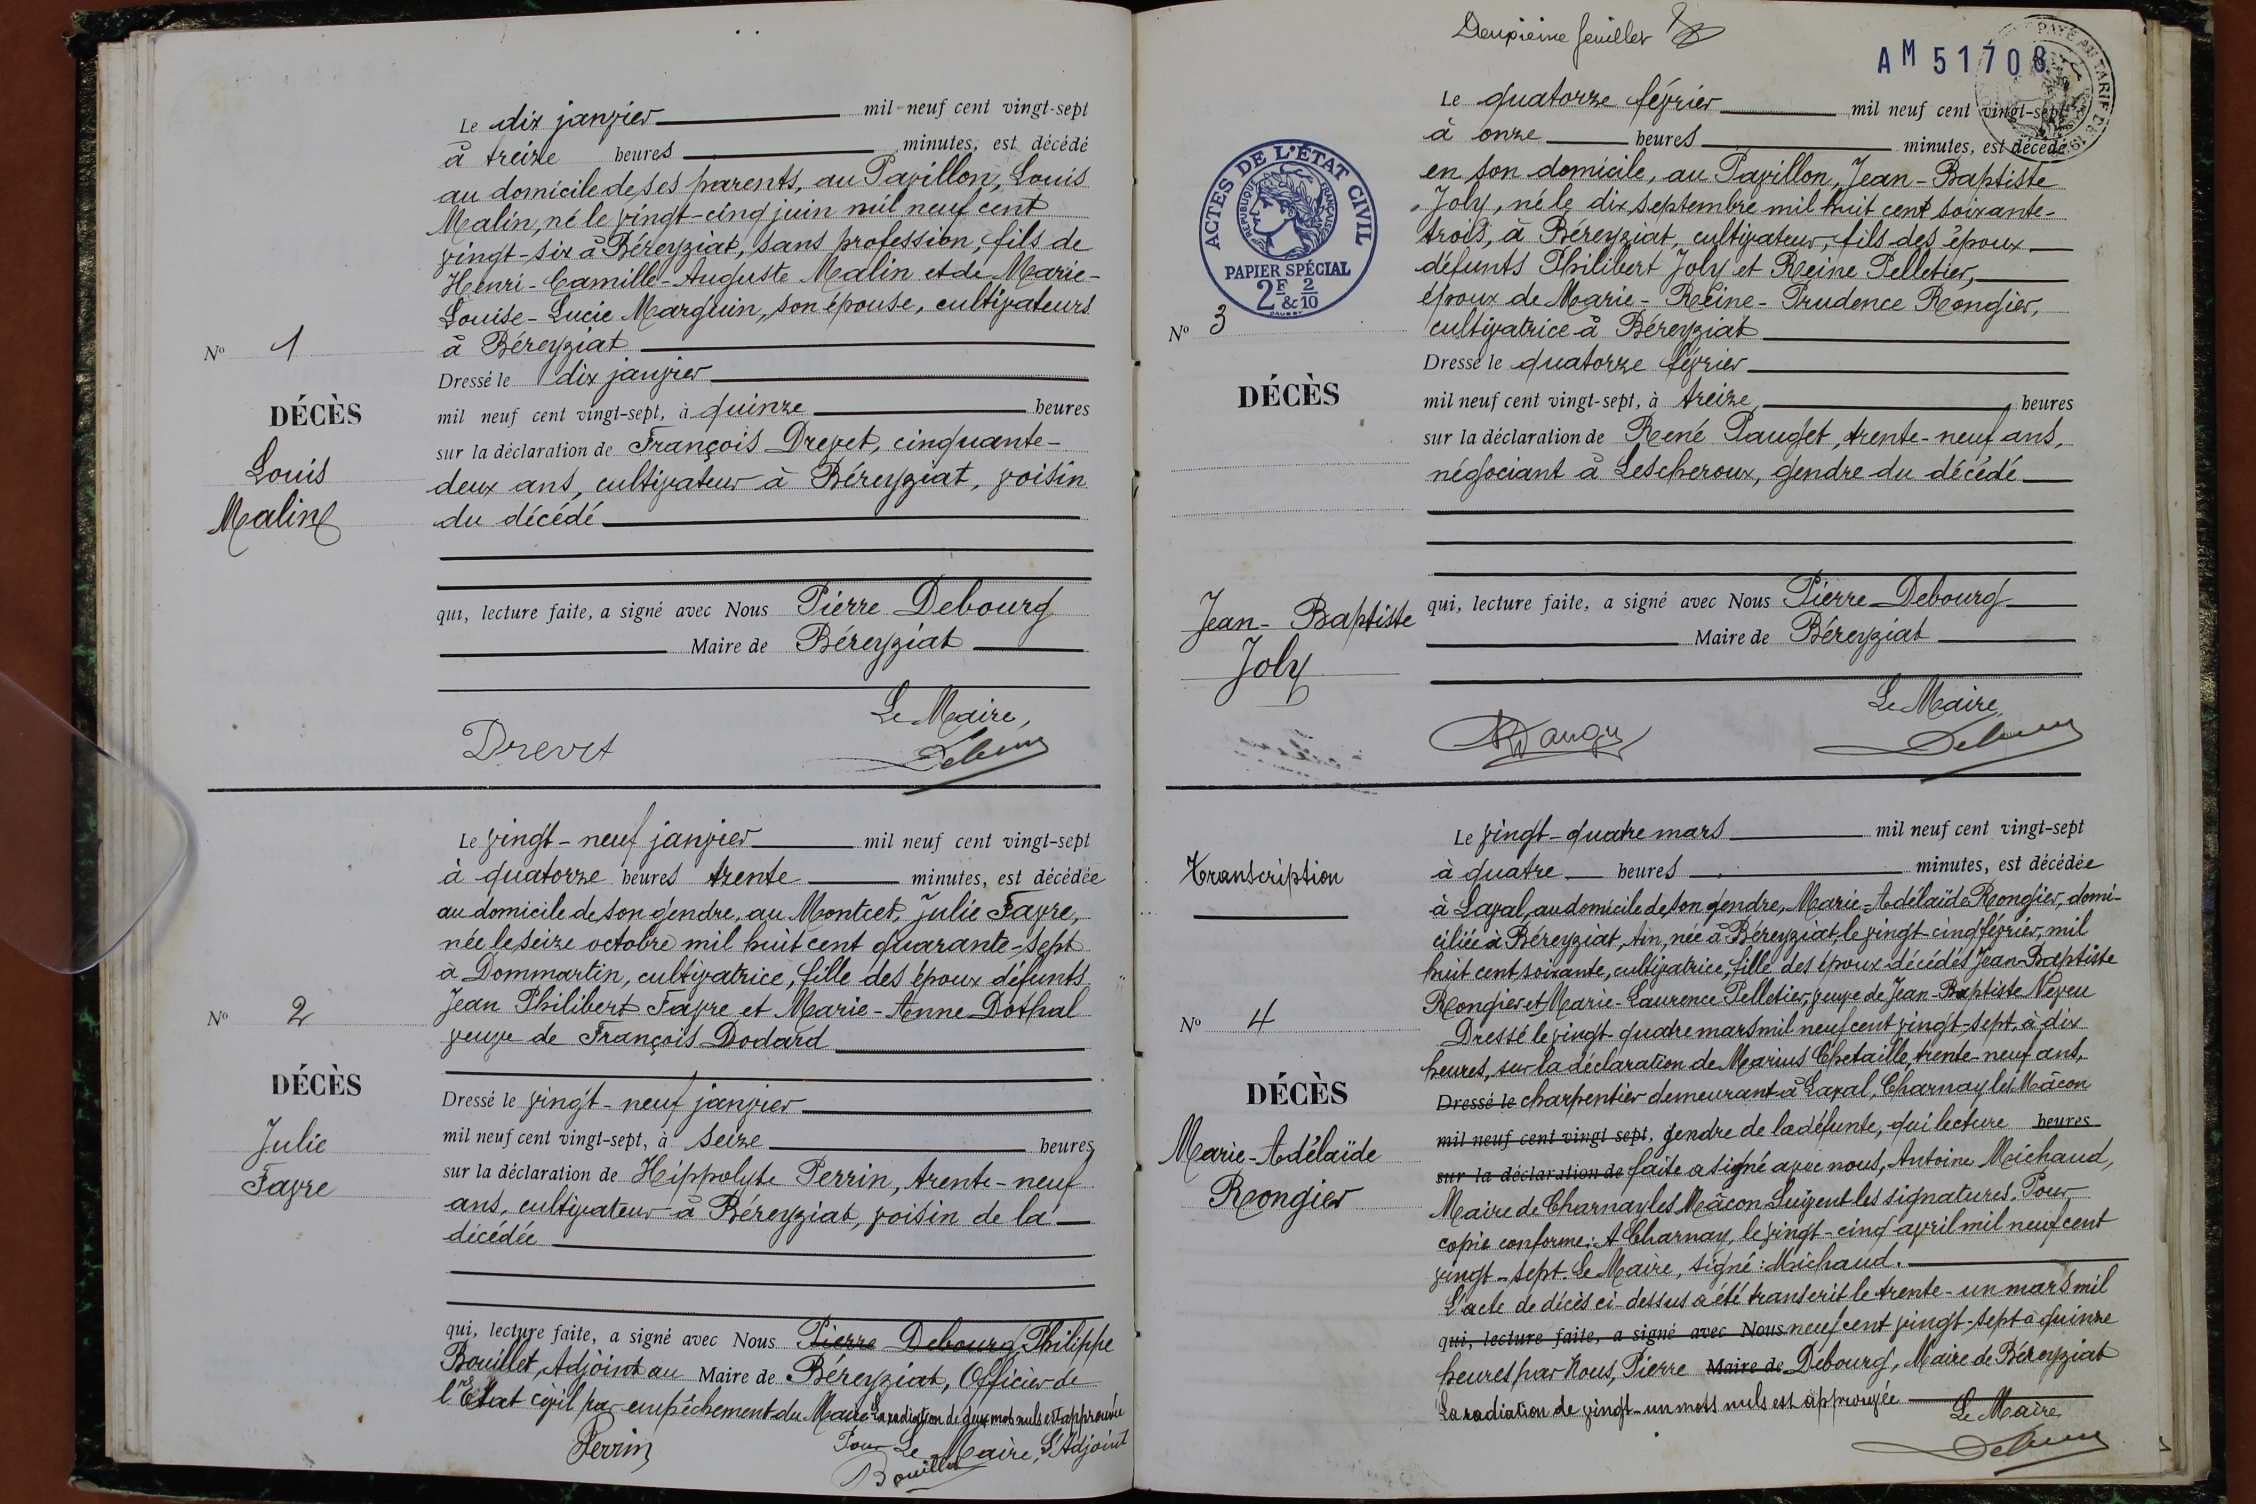 Le dix janvier mil neuf cent vingt-sept
à treize heures minutes, est décédé
au domicile de ses parents, au Pavillon, Louis
Malin, né le vingt-cinq juin mil neuf cent
vingt-six à Béreyziat, sans profession, fils de
Henri-Camille-Auguste Malin et de Marie-
Louise-Lucie Marguin, son épouse, cultivateurs
à Béreyziat
Nº 1
Dressé le dix janvier
DÉCÈS
mil neuf cent vingt-sept, à quinze heures
sur la déclaration de François Drevet, cinquante-
Louis
deux ans, cultivateur à Béreyziat, voisin
Malin
du décédé
qui, lecture faite, a signé avec Nous Pierre Debourg
Maire de Béreyziat
Le Maire,
Drevet
Le vingt-neuf janvier mil neuf cent vingt-sept
à quatorze heures trente minutes, est décédée
au domicile de son gendre, au Montcet, Julie Favre,
née le seize octobre mil huit cent quarante-sept
à Dommartin, cultivatrice, fille des époux défunts
Jean Philibert Favre et Marie-Anne Dothal
Nº 2
veuve de François Dodard
DÉCÈS
Dressé le vingt-neuf janvier
mil neuf cent vingt-sept, à seize heures
Julie
sur la déclaration de Hippolyte Perrin, trente-neuf
Favre
ans, cultivateur à Béreyziat, voisin de la
décédée
qui, lecture faite, a signé avec Nous Pierre Debourg Philippe
Bouillet, Adjoint au Maire de Béreyziat, Officier de
l'Etat civil par empêchement du Maire La radiation de deux mots nuls est approuvée
Pour Le Maire, L'Adjoint
Perrin
Bouillet
Deuxième feuillet
AM 51708
Le quatorze février mil neuf cent vingt-sept
à onze heures minutes, est décédé
en son domicile, au Pavillon, Jean-Baptiste
Joly, né le dix septembre mil huit cent soixante-
trois, à Béreyziat, cultivateur, fils des époux
défunts Philibert Joly et Reine Pelletier,
époux de Marie-Reine-Prudence Rongier,
cultivatrice à Béreyziat
ACTES DE L'ÉTAT CIVIL
RÉPUBLIQUE FRANÇAISE
PAPIER SPÉCIAL
2F & 2/10
Nº 3
Dressé le quatorze février
DÉCÈS
mil neuf cent vingt-sept, à treize heures
sur la déclaration de René Pauget, trente-neuf ans,
négociant à Lescheroux, gendre du décédé
qui, lecture faite, a signé avec Nous Pierre Debourg
Jean-Baptiste
Joly
Maire de Béreyziat
Le Maire,
Le vingt-quatre mars mil neuf cent vingt-sept
Transcription
à quatre heures minutes, est décédée
à Laval, au domicile de son gendre, Marie-Adélaïde Rongier, domi-
ciliée à Béreyziat, Ain, née à Béreyziat, le vingt-cinq février, mil
huit cent soixante, cultivatrice, fille des époux décédés Jean-Baptiste
Rongier et Marie-Laurence Pelletier, veuve de Jean-Baptiste Neveu
Nº 4
Dressé le vingt-quatre mars mil neuf cent vingt-sept, à dix
heures, sur la déclaration de Marius Chetaille, trente-neuf ans,
DÉCÈS
Dressé le charpentier demeurant à Laval, Charnay les Mâcon
mil neuf cent vingt sept, gendre de la défunte, qui lecture heures
Marie-Adélaïde
sur la déclaration de faite a signé avec nous, Antoine Michaud,
Rongier
Maire de Charnay les Mâcon. Suivent les signatures. Pour
copie conforme: A Charnay, le vingt-cinq avril mil neuf cent
vingt-sept. Le Maire, signé: Michaud.
L'acte de décès ci-dessus a été transcrit le trente-un mars mil
qui, lecture faite, a signé avec Nous neuf cent vingt-sept à quinze
heures par Nous, Pierre Maire de Debourg, Maire de Béreyziat
La radiation de vingt-un mots nuls est approuvée
Le Maire